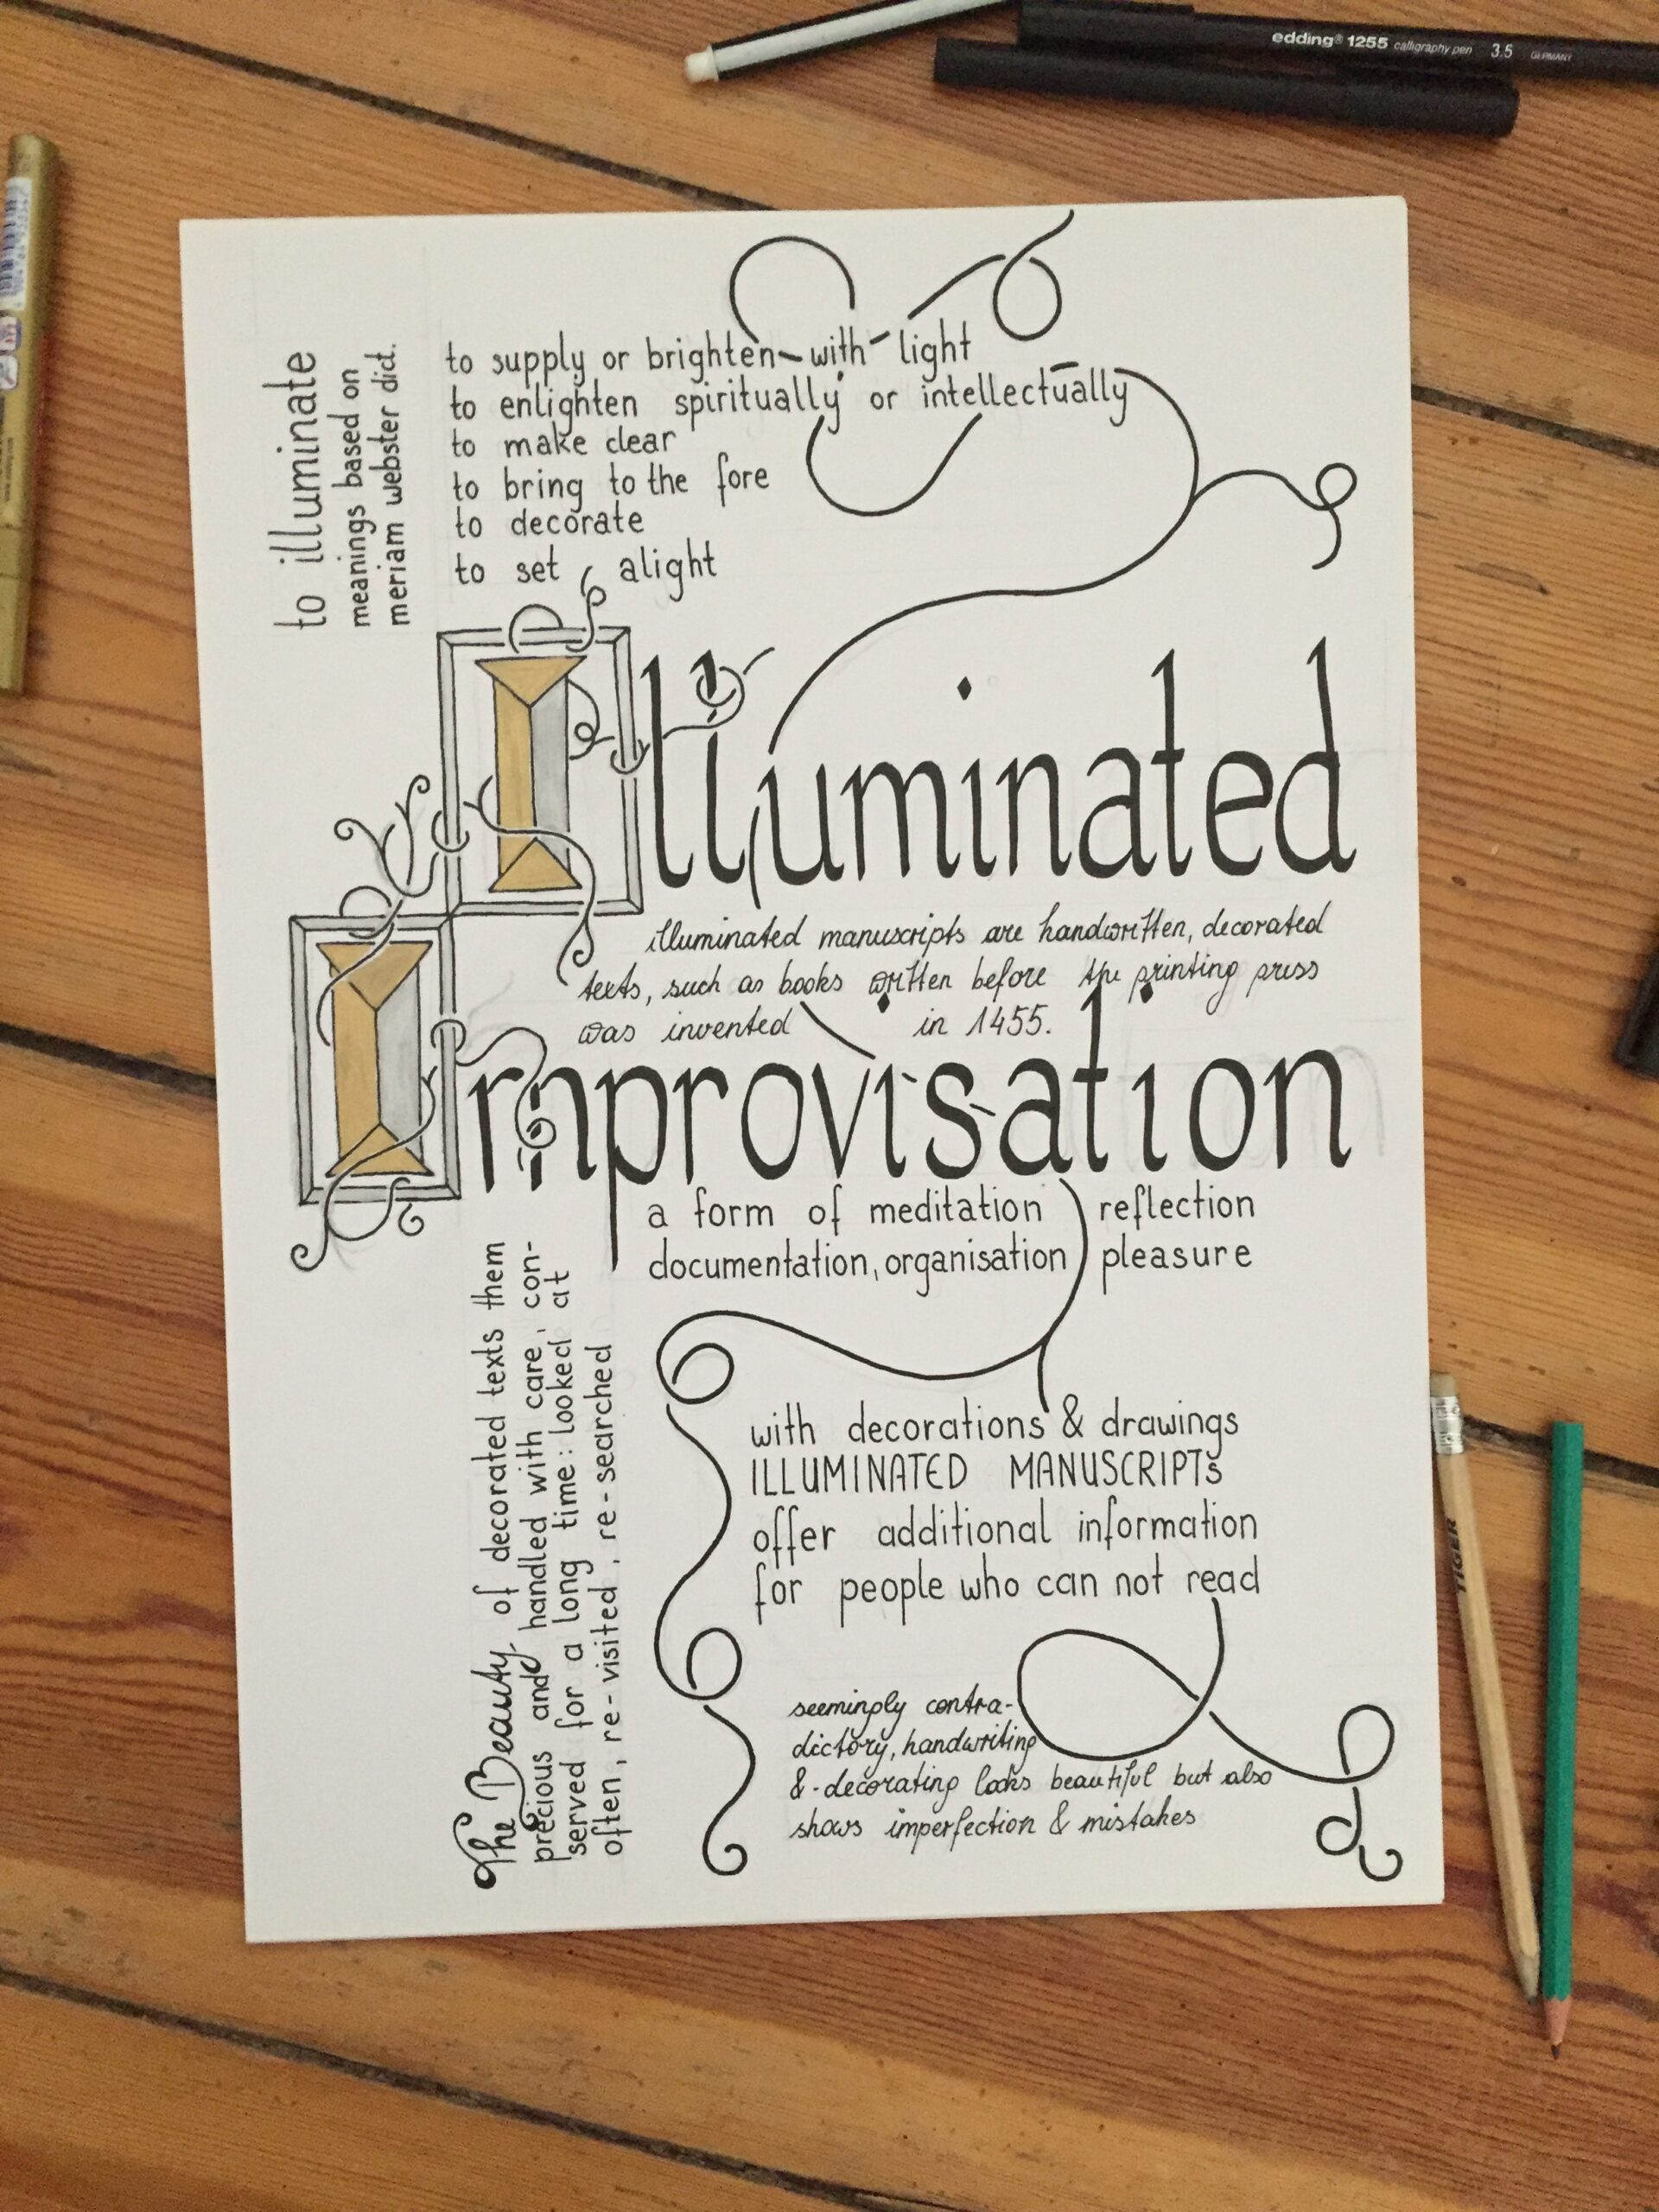 edding® 1255 calligraphy pen 3.5 GERMANY
to illuminate
meanings based on
meriam webster dict.
to supply or brighten with light
to enlighten spiritually or intellectually
to make clear
to bring to the fore
to decorate
to set alight
Illuminated
illuminated manuscripts are handwritten, decorated
texts, such as books written before the printing press
was invented in 1455.
Improvisation
a form of meditation reflection
documentation, organisation pleasure
The Beauty of decorated texts them
precious and handled with care, con-
served for a long time: looked at
often, re-visited, re-searched
with decorations & drawings
ILLUMINATED MANUSCRIPTs
offer additional information
for people who can not read
seemingly contra-
dictory, handwriting
&-decorating looks beautiful but also
shows imperfection & mistakes
TIGER